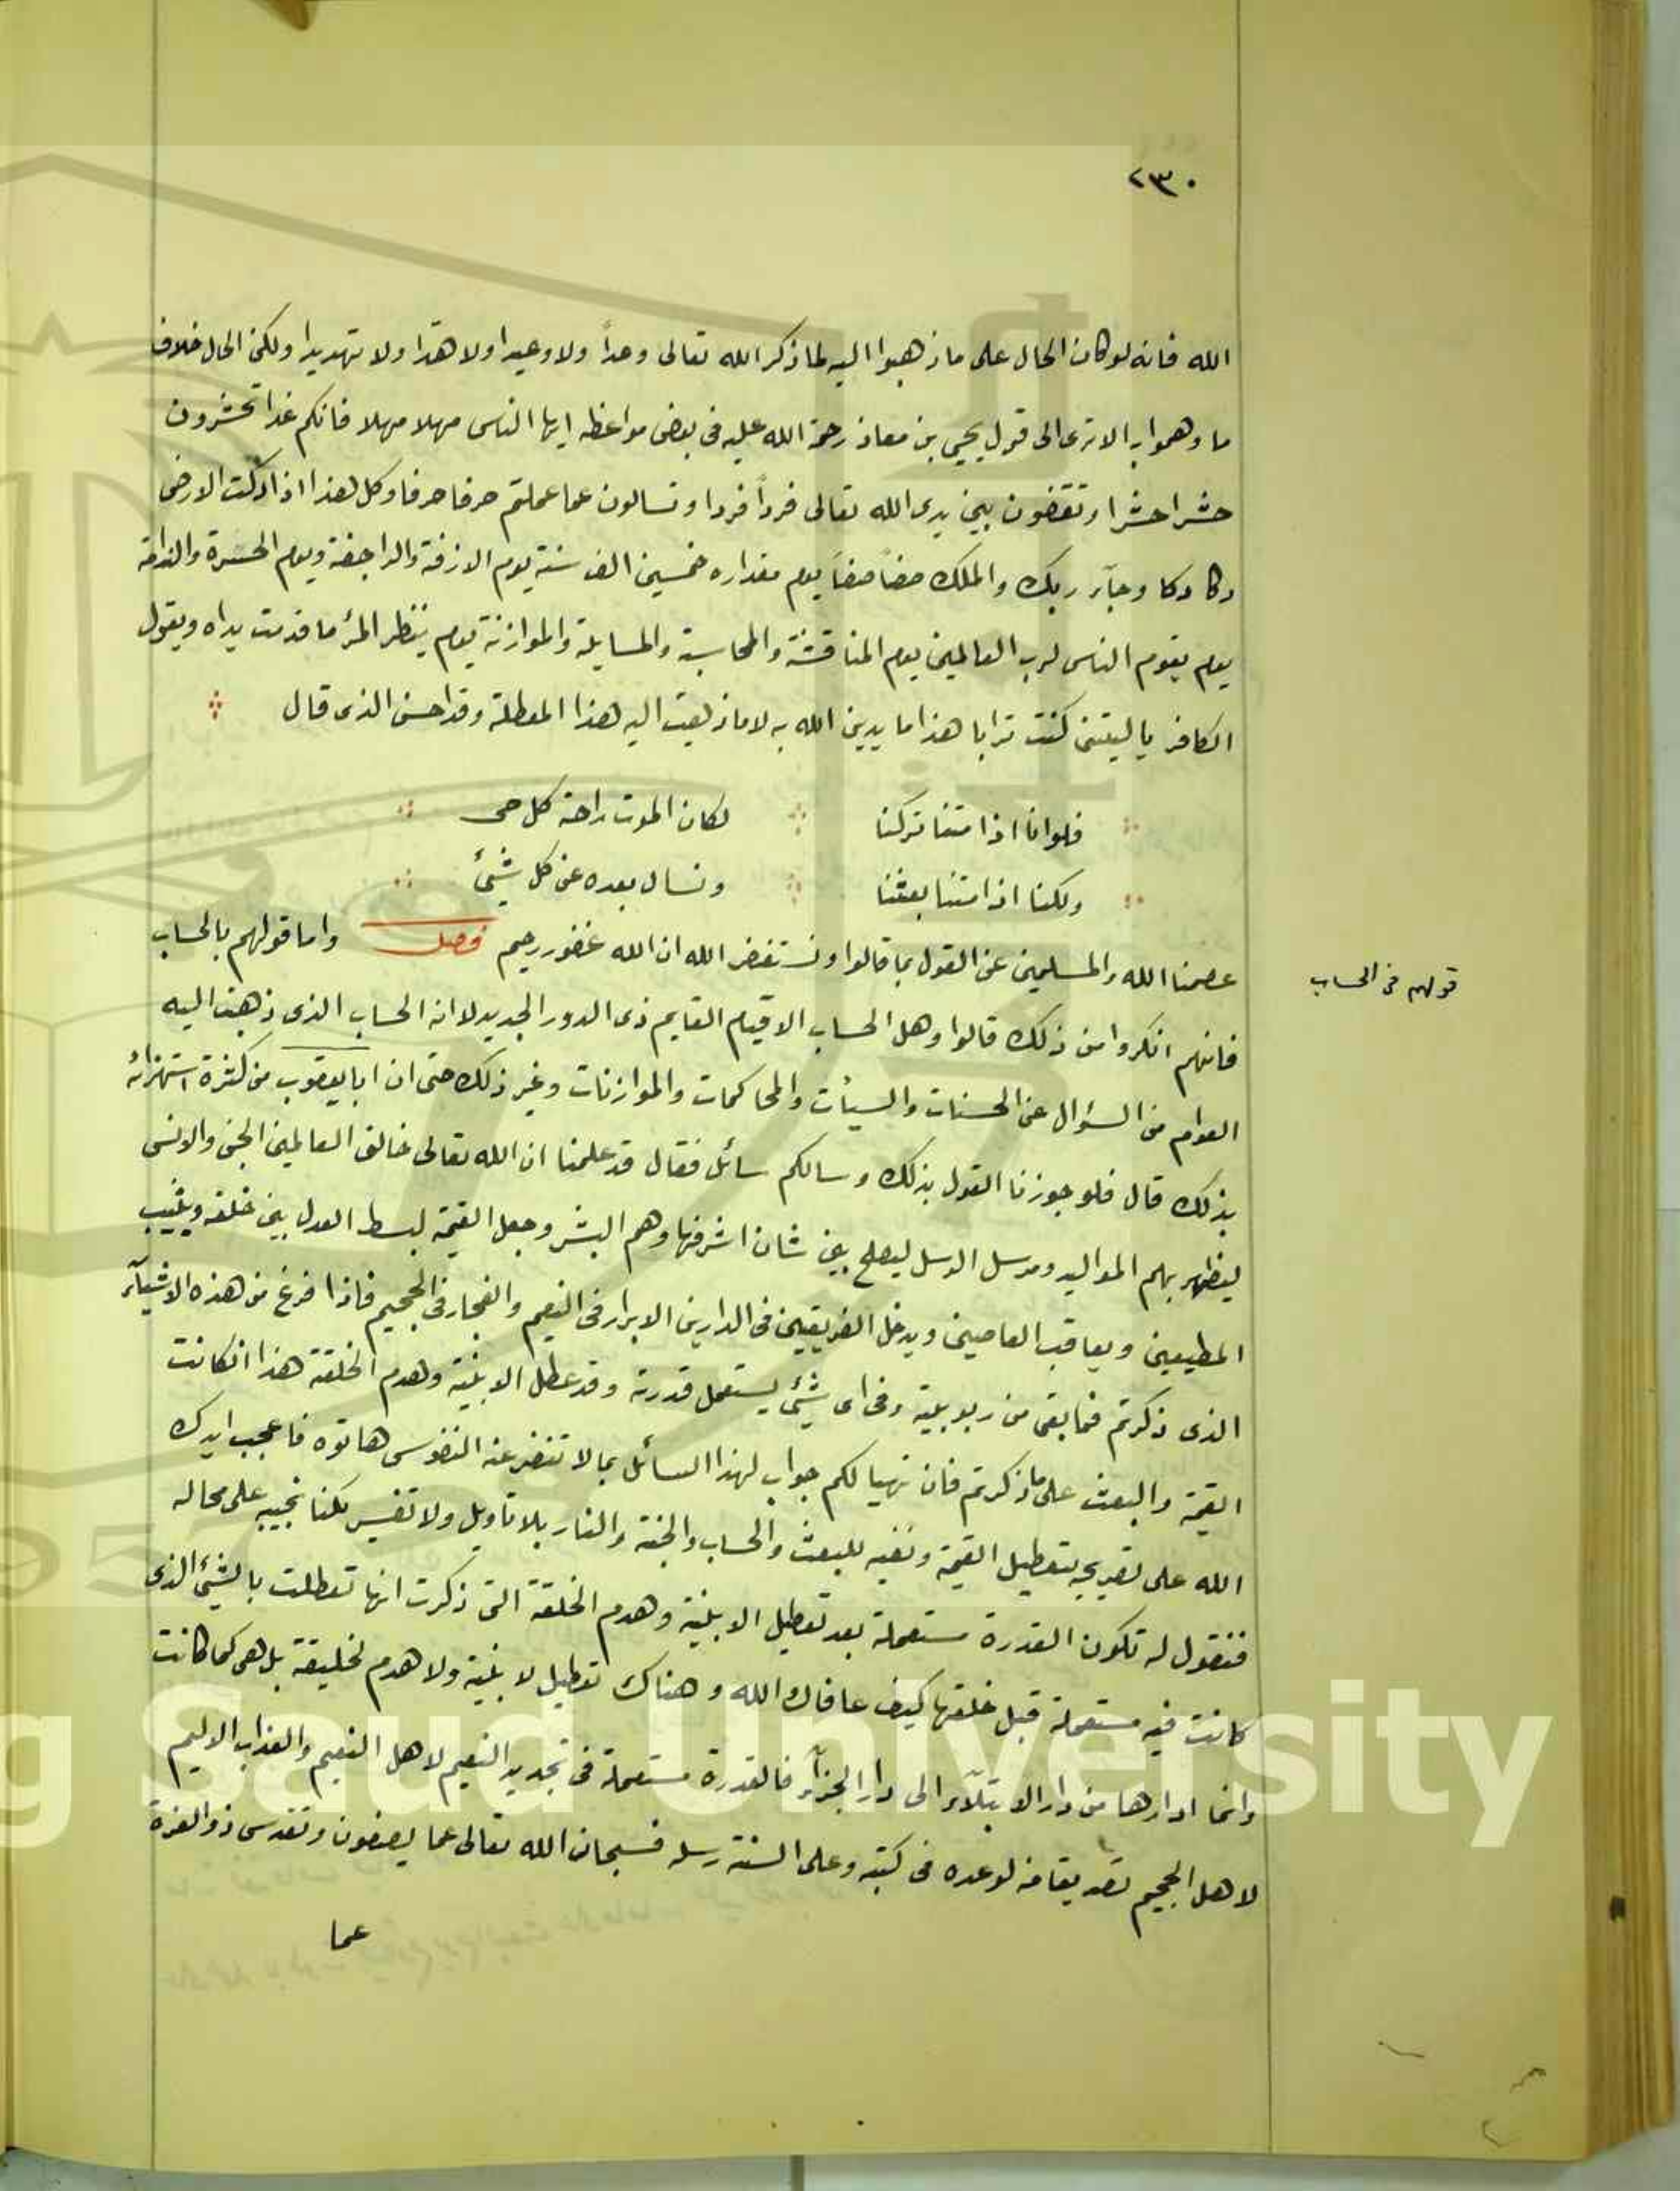 ٢٣٠
الله فانه لوكان الحال على ما ذهبوا اليه لما ذكر الله تعالى وعداً ولا وعيدا ولا هدا ولا تهديدا ولكن الحال خلاف
ما وهموا به الا ترى الى قول يحيى بن معاذ رحمة الله عليه فى بعض مواعظه ايها الناس مهلا مهلا فانكم غدا تحشرون
حشرا حشرا وتقفون بين يدى الله تعالى فرداً فردا وتسالون عما عملتم حرفا حرفا وكل هذا اذا دكت الارض
دكا دكا وجآء ربك والملك صفاً صفاً يوم مقداره خمسين الف سنة يوم الازفة والراجفة ويوم الحسرة والندامة
يوم يقوم الناس لرب العالمين يوم المناقشة والمحاسبة والمسايلة والموازنة يوم ينظر المرء ما قدمت يداه ويقول
الكافر يا ليتنى كنت ترابا هذا ما يدين الله به لا ما ذهبت اليه هذا المعطلة وقد احسن الذى قال
فلو انا اذا متنا تركنا لكان الموت راحة كل حى
ولكنا اذا متنا بعثنا ونسال بعده عن كل شيئ
عصمنا الله والمسلمين عن القول بما قالوا ونستغفر الله ان الله غفور رحيم فصل واما قولهم بالحساب
قولهم فى الحساب
فانهم انكروا من ذلك قالوا وهل الحساب الا قيام القايم ذى الدور الجديد لا انه الحساب الذى ذهبت اليه
العوام من السؤال عن الحسنات والسيأت والمحاكمات والموازنات وغير ذلك حتى ان ابا يعقوب من كثرة استهزائه
بذلك قال فلو جوزنا القول بذلك وسالكم سائل فقال قد علمنا ان الله تعالى خالق العالمين الجن والانس
ليظهر بهم المواليد ومرسل الرسل ليصلح بين شان اشرفها وهم البشر وجعل القيمة لبسط العدل بين خلقه ويثيب
المطيعين ويعاقب العاصين ويدخل الفريقين فى الدارين الابرار فى النعيم والفجار فى الجحيم فاذا فرغ من هذه الاشيآء
الذى ذكرتم فما بقى من ربوبيية وفى اى شيئ يستعمل قدرته وقد عطل الابنية وهدم الخلقة هذا انكانت
القيمة والبعث على ما ذكرتم فان تهيا لكم جواب لهذا السائل بما لا تنفر عنه النفوس هاتوه فاعجب ايدك
الله على تصريحه بتعطيل القيمة ونفيه للبعث والحساب والجنة والنار بلا تاويل ولا تفسير لكنا نجيبه على محاله
فنقول له تكون القدرة مستعملة بعد تعطيل الابنية وهدم الخلقة التى ذكرت انها تعطلت بالشيئ الذى
كانت فيه مستعملة قبل خلقها كيف عافاك الله وهناك تعطيل لابنية ولا هدم لخليقة بل هى كما كانت
وانما ادارها من دار الابتلآء الى دار الجزآء فالقدرة مستعملة فى تجديد النعيم لاهل النعيم والعذاب الاليم
لاهل الجحيم تصديقا منه لوعده فى كتبه وعلى السنة رسله فسبحان الله تعالى عما يصفون وتقدس ذو العزة
عما
g Saud University
957